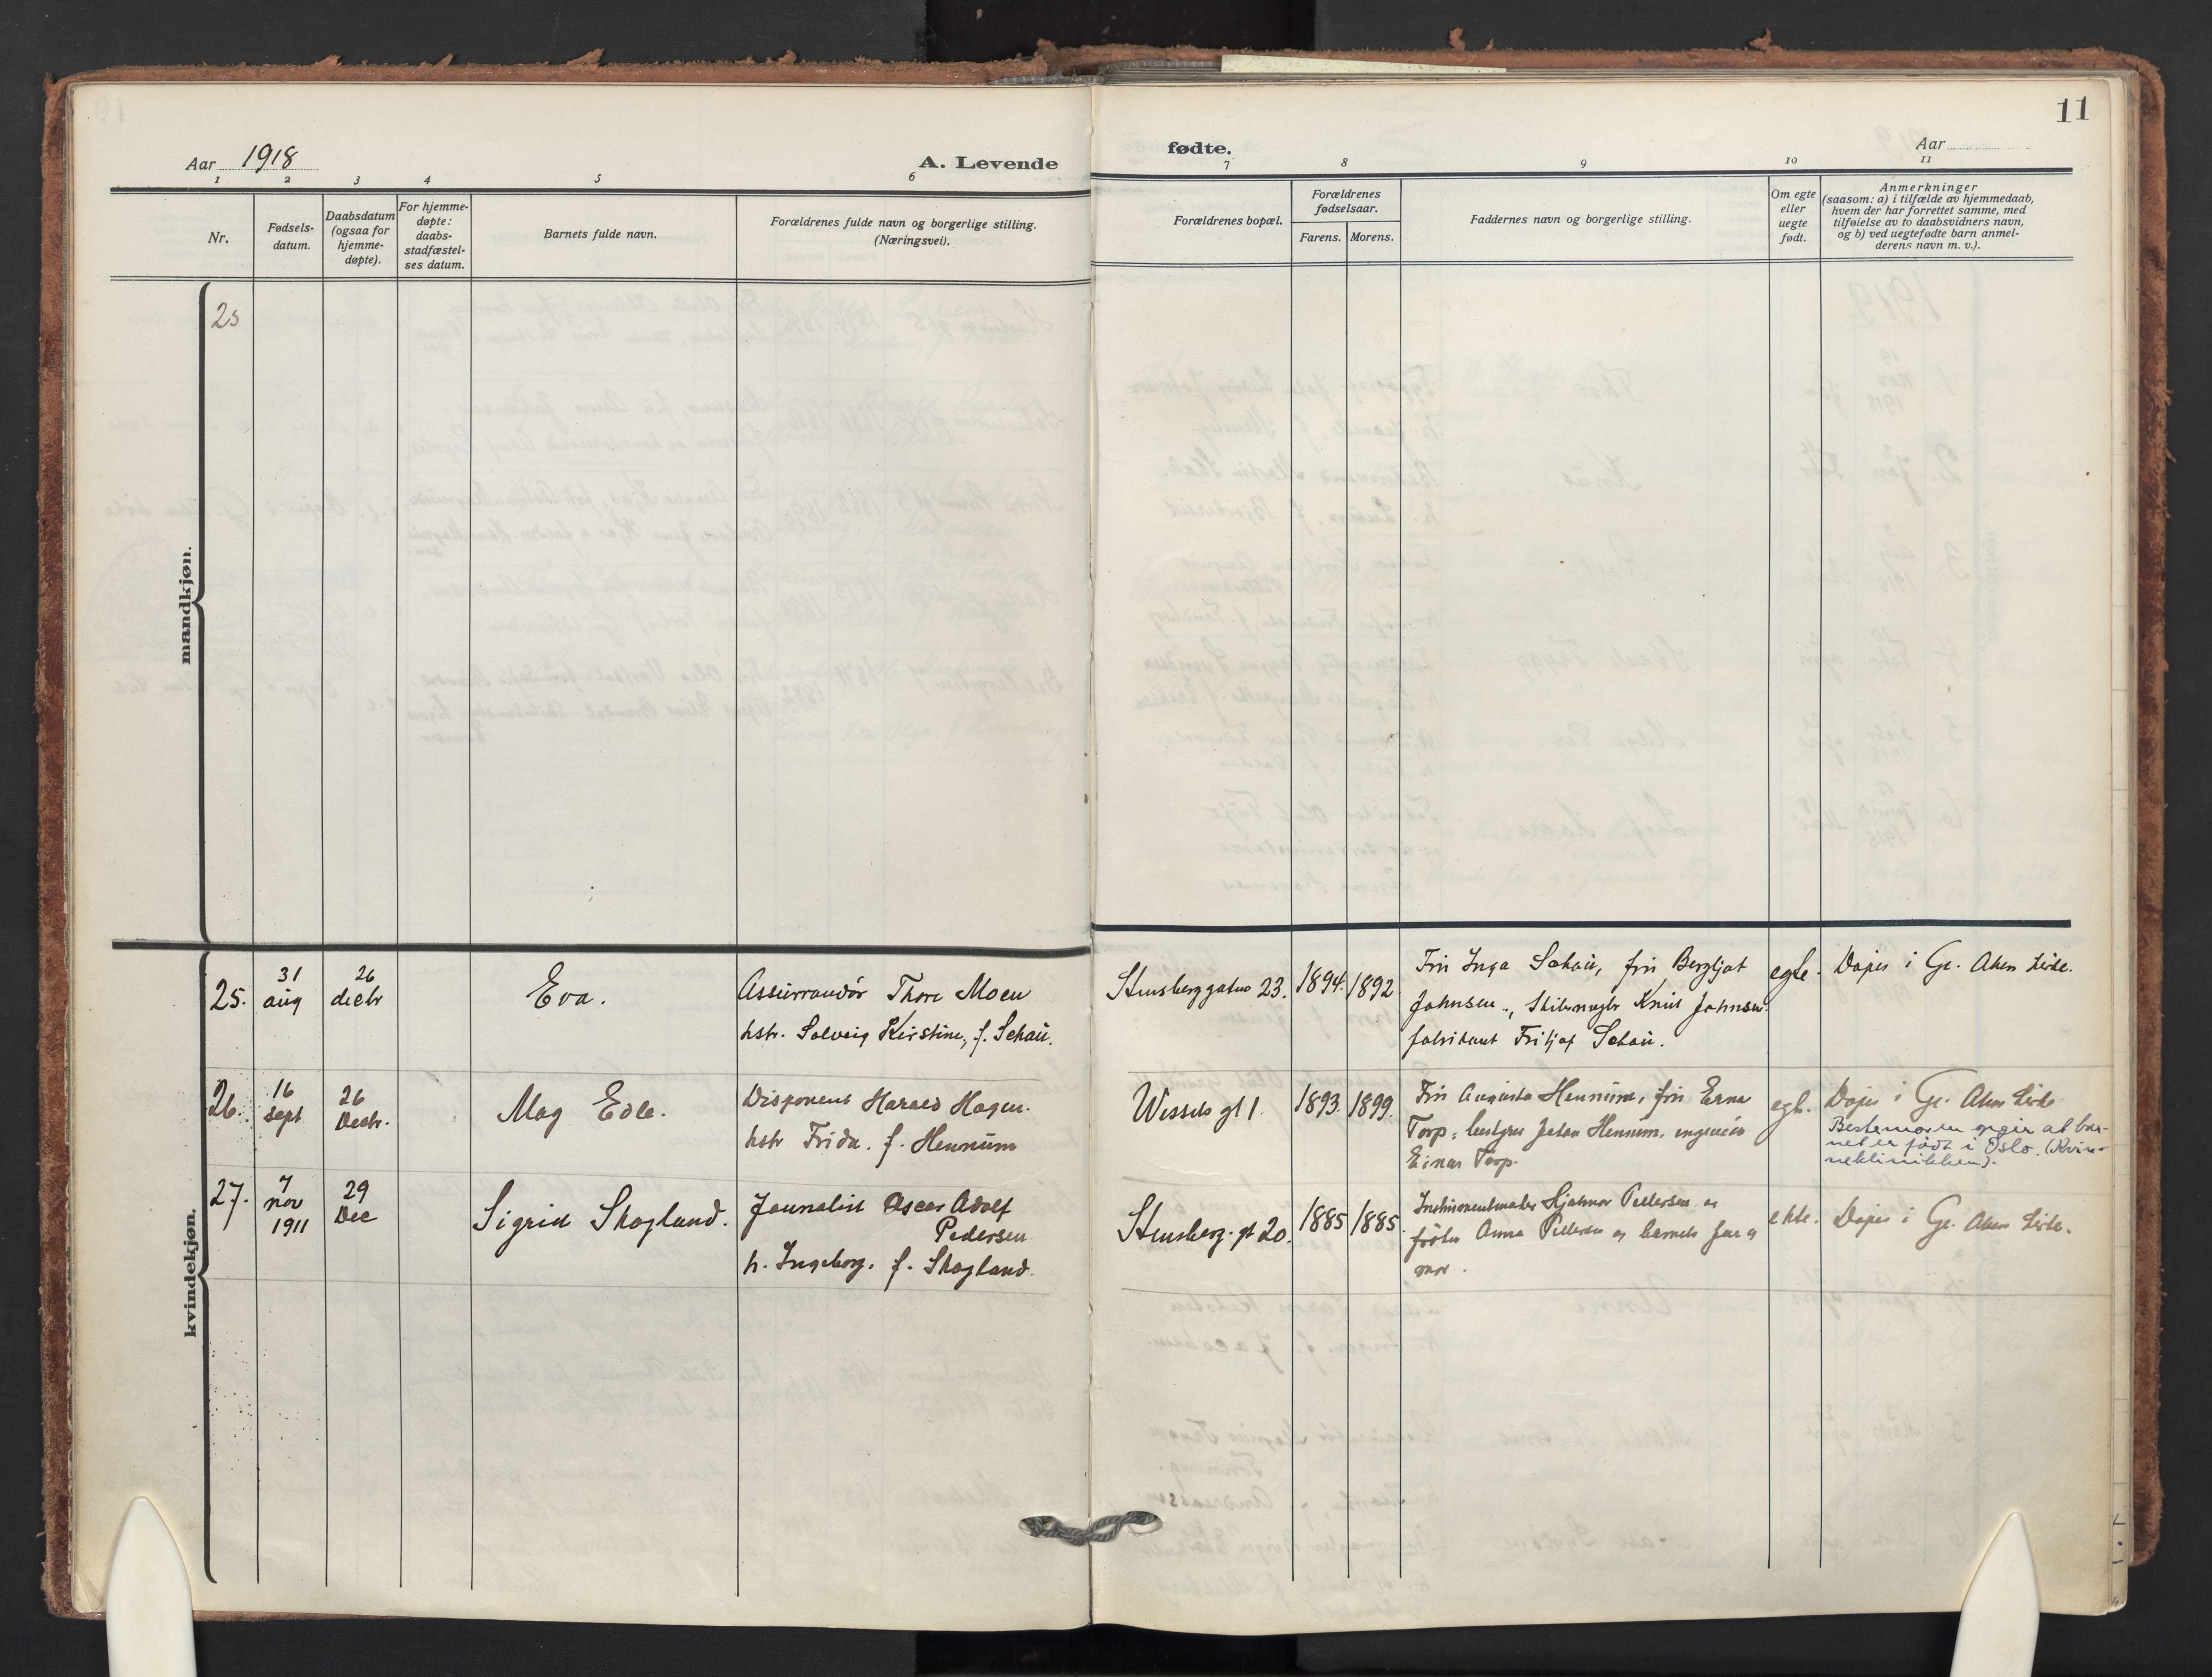 11
Aar 1918
A. Levende
fødte.
Aar
1 2 3 4 5 6 7 8 9 10 11
Nr.
Fødsels-
datum.
Daabsdatum
(ogsaa for
hjemme-
døpte).
For hjemme-
døpte:
daabs-
stadfæstel-
ses datum.
Barnets fulde navn.
Forældrenes fulde navn og borgerlige stilling.
(Næringsvei).
Forældrenes bopæl.
Forældrenes
fødselsaar.
Farens. Morens.
Faddernes navn og borgerlige stilling.
Om egte
eller
uegte
født.
Anmerkninger
(saasom: a) i tilfælde av hjemmedaab,
hvem der har forrettet samme, med
tilføielse av to daabsvidners navn,
og b) ved uegtefødte barn anmel-
derens navn m. v.).
mandkjøn.
25
kvindekjøn.
25.
31
aug
26
decbr
Eva.
Assurrandør Thore Moen
hstr. Solveig Kirstine, f. Schau.
Stensberggaten 23.
1894. 1892
Fru Inga Schau, fru Bergljot
Johnsen., Skibsmægler Knut Johnsen
fabrikant Fritjof Schau.
egte.
Døpt i Gl. Aker kirke.
26.
16
sept
26
Decbr.
Mag Edle.
Disponent Harald Hagen.
hstr Frida. f. Hennum
Wessels gt 1.
1893. 1899.
Fru Augusta Hennum, fru Erna
Torp, Johan Hennum, ingeniør
Einar Torp.
egte.
Døpt i Gl. Aker kirke
Bestemoren opgir at bar-
net er født i Oslo. (Kvin-
neklinikken).
27.
7
nov
1911
29
Dec
Sigrid Skogland.
Journalist Oscar Adolf
Pedersen
h. Ingeborg. f. Skogland.
Stensberg. gt 20.
1885 1885.
Instrumentmaker Hjalmar Pettersen og
frøken Anna Pettersen og barnets far og
mor.
ekte.
Døpt i Gl. Aker kirke.